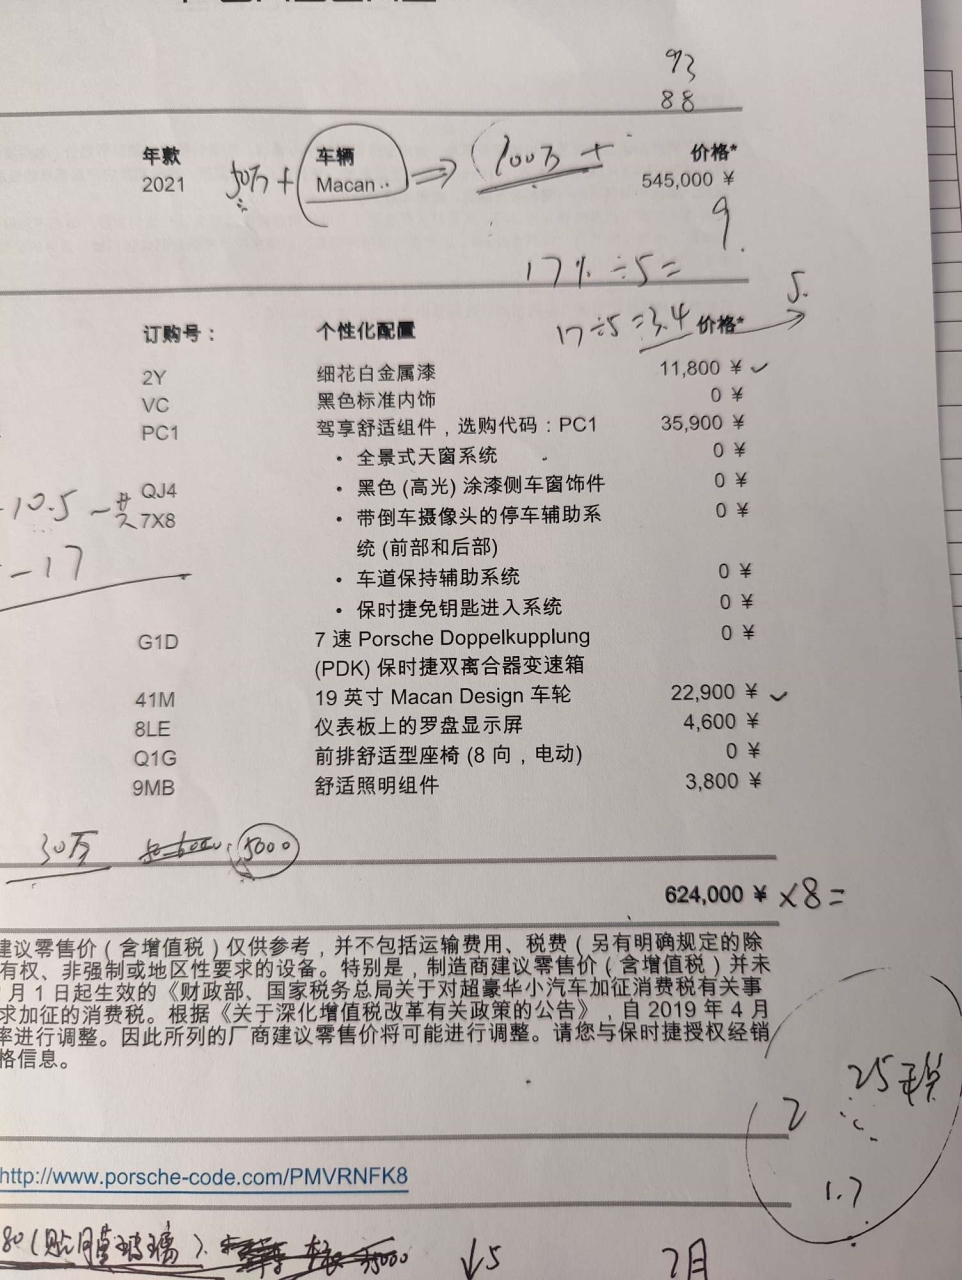 93
88
年款 车辆 价格*
2021 50万 + Macan ⇒ 100万 + 545,000 ¥
9
17% ÷5=
17÷5=3.4 5.
订购号： 个性化配置 价格*
2Y 细花白金属漆 11,800 ¥ ✓
VC 黑色标准内饰 0 ¥
PC1 驾享舒适组件，选购代码：PC1 35,900 ¥
• 全景式天窗系统 0 ¥
QJ4 • 黑色 (高光) 涂漆侧车窗饰件 0 ¥
-10.5 -
7X8 • 带倒车摄像头的停车辅助系 0 ¥
统 (前部和后部)
-17
• 车道保持辅助系统 0 ¥
• 保时捷免钥匙进入系统 0 ¥
G1D 7 速 Porsche Doppelkupplung 0 ¥
(PDK) 保时捷双离合器变速箱
41M 19 英寸 Macan Design 车轮 22,900 ¥ ✓
8LE 仪表板上的罗盘显示屏 4,600 ¥
Q1G 前排舒适型座椅 (8 向，电动) 0 ¥
9MB 舒适照明组件 3,800 ¥
30万 5000
624,000 ¥ ×8=
建议零售价（含增值税）仅供参考，并不包括运输费用、税费（另有明确规定的除
有权、非强制或地区性要求的设备。特别是，制造商建议零售价（含增值税）并未
月 1 日起生效的《财政部、国家税务总局关于对超豪华小汽车加征消费税有关事
求加征的消费税。根据《关于深化增值税改革有关政策的公告》，自 2019 年 4 月
率进行调整。因此所列的厂商建议零售价将可能进行调整。请您与保时捷授权经销
格信息。
25
2
1.7
http://www.porsche-code.com/PMVRNFK8
80(贴膜玻璃). ↓5 2月